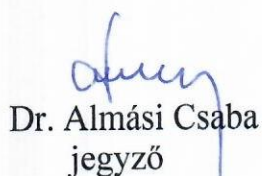 Dr. Almási Csaba
jegyző